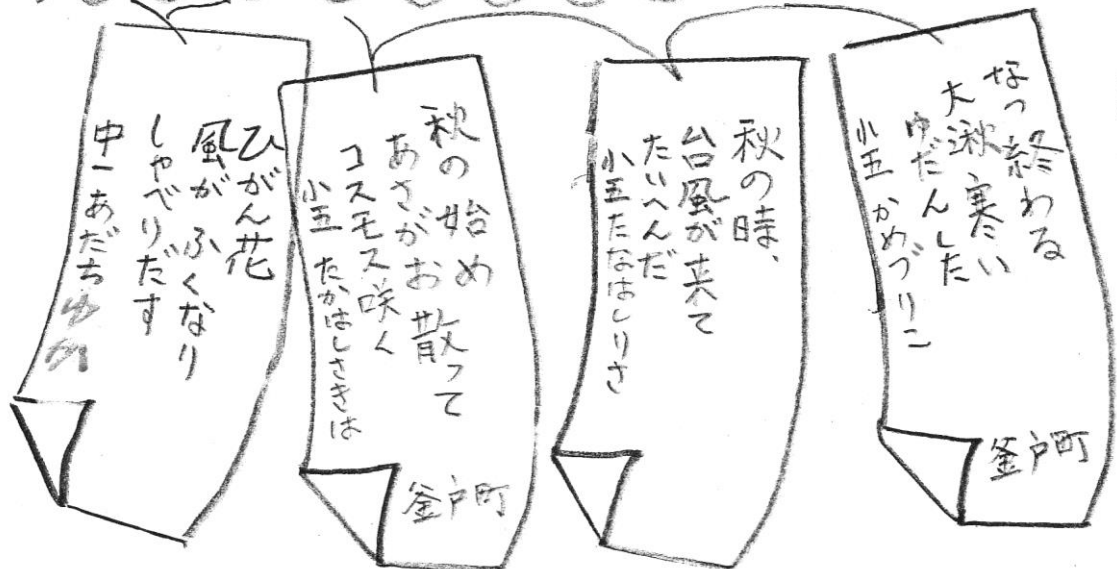 なつ終わる
大湫寒い
ゆだんした
小五 かめづりこ
釜戸町
秋の時、
台風が来て
たいへんだ
小五たなはしりさ
秋の始め
あさがお散って
コスモス咲く
小五 たかはしさきは
釜戸町
ひがん花
風がふくなり
しゃべりだす
中一あだちゆか